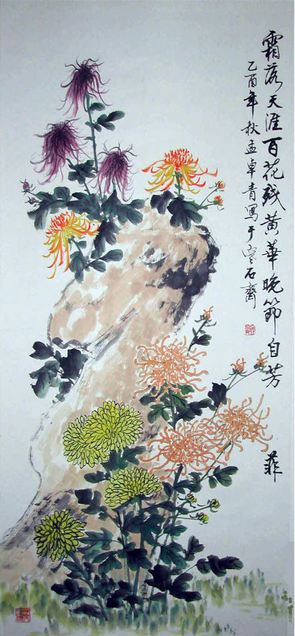 霜落天涯百花残黄華晚節自芳菲
乙酉年秋孟卓青寫于
石齋